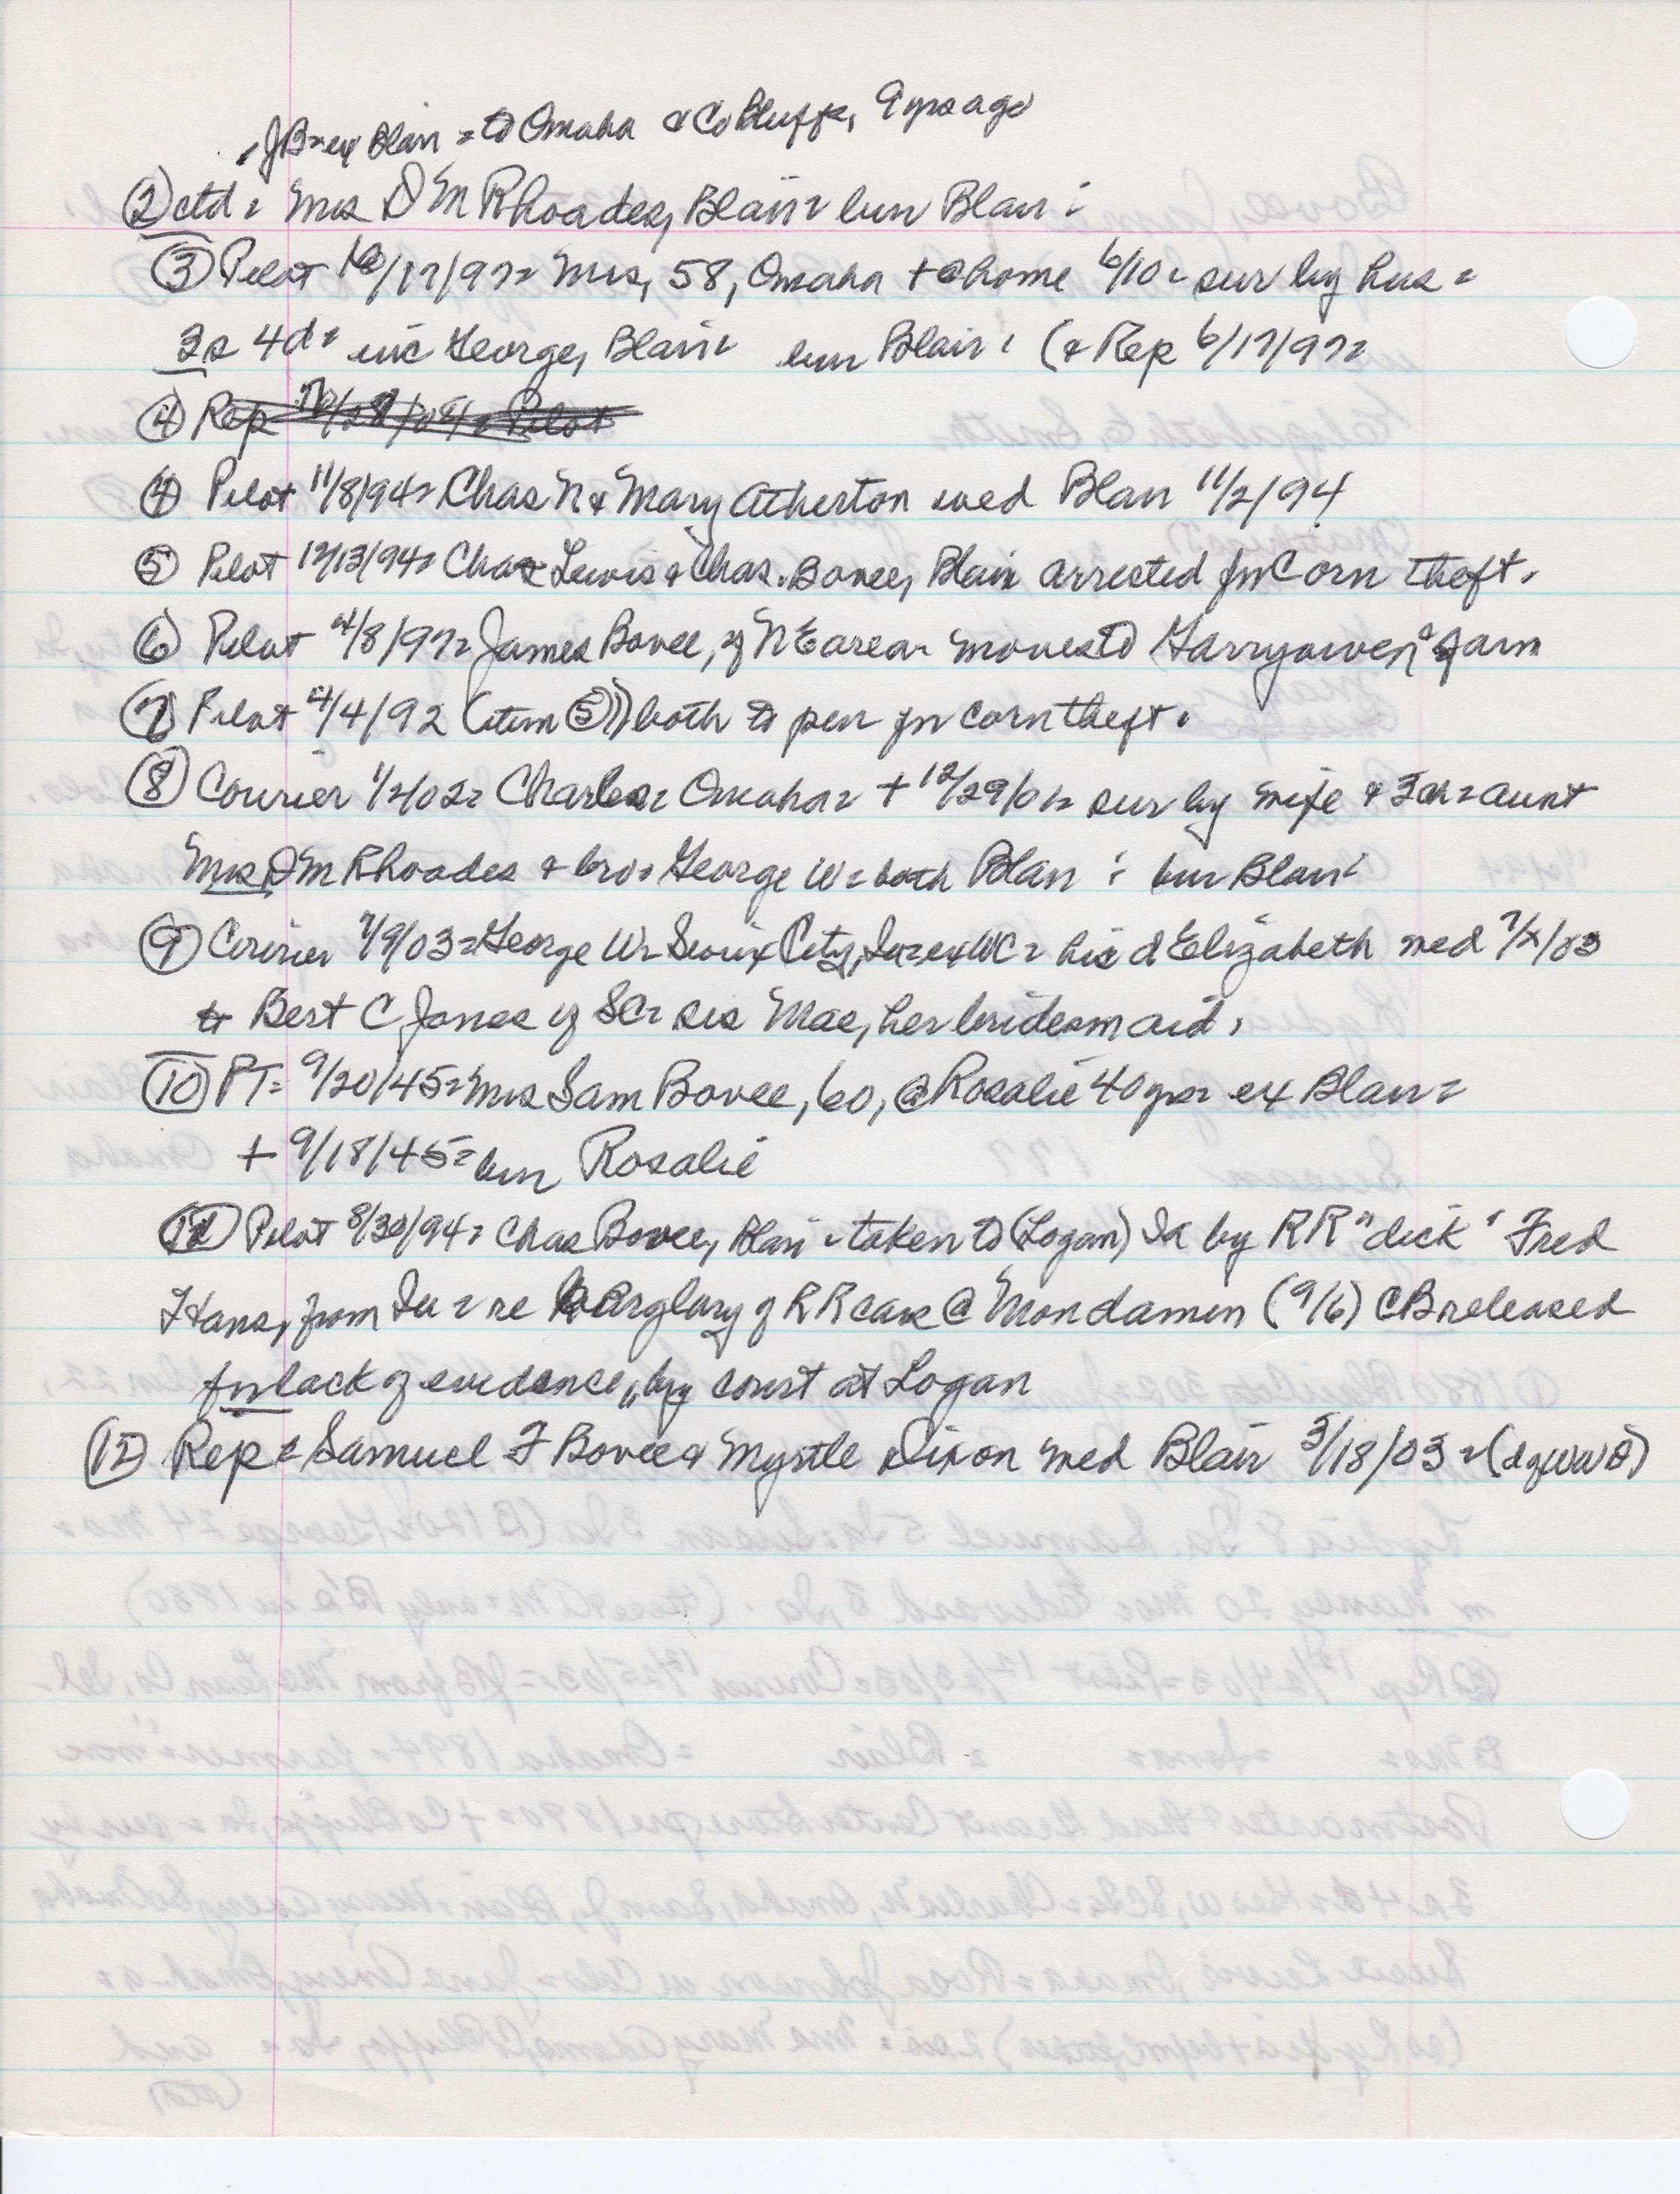 JB = ex Blair = to Omaha & Co Bluffs, 9 yrs ago
② ctd = Mrs D M Rhoades, Blair = bur Blair =
③ Pilot 6/17/97 = Mrs, 58, Omaha + @ home 6/10 = sur by hus =
3s 4d = inc George, Blair = bur Blair = (& Rep 6/17/97 =
④ Pilot 11/8/94 = Chas N & Mary Atherton wed Blair 11/2/94
⑤ Pilot 12/13/94 = Chas Lewis & Chas. Bovee, Blair arrested for Corn theft.
⑥ Pilot 4/8/97 = James Bovee, of NE area = moves to Garryowen farm
⑦ Pilot 4/4/92 (item ⑤) both to pen for corn theft.
⑧ Courier 1/2/02 = Charles = Omaha = + 12/29/01 = sur by wife & 3 ch = aunt
Mrs D M Rhoades & bro = George W = both Blair = bur Blair =
⑨ Courier 7/9/03 = George W = Sioux City, Ia = ex WC = his d Elizabeth wed 7/ /03
to Bert C Jones of SC = sis Mae, her bridesmaid.
⑩ PT = 9/20/45 = Mrs Sam Bovee, 60, @ Rosalie 40 yrs = ex Blair =
+ 9/18/45 = bur Rosalie
⑪ Pilot 8/30/94 = Chas Bovee, Blair = taken to (Logan) Ia by RR "dick" Fred
Hans, from Ia = re burglary of RR cars @ Mondamin (9/6) CB released
for lack of evidence, by court at Logan
⑫ Rep = Samuel F Bovee & Myrtle Dixon wed Blair 3/18/03 = (d of WWD)